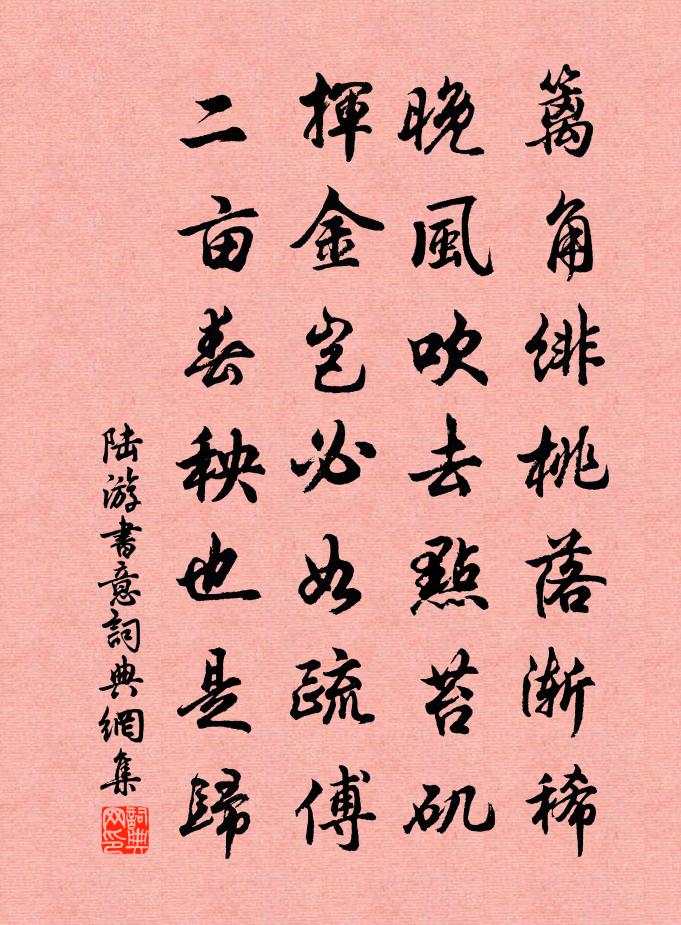 籬角緋桃落漸稀
晚風吹去點苔矶
揮金豈必如疏傅
二亩春秧也是歸
陆游書意詞典網集
詞典网印